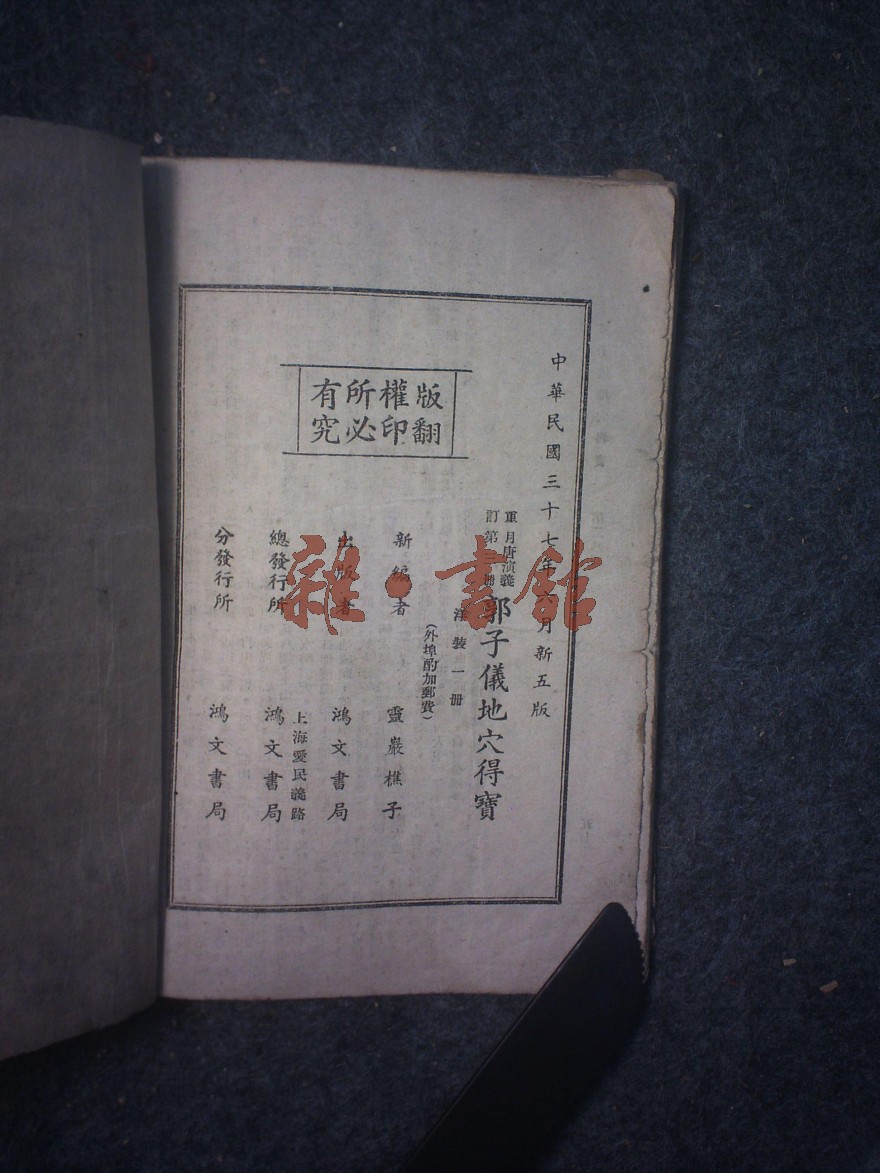 中華民國三十七年六月新五版
版權所有
翻印必究
重訂
月唐演義
第 冊
郭子儀地穴得寶
洋裝一冊
(外埠酌加郵費)
新編者 靈巖樵子
出版者 鴻文書局
上海愛民義路
總發行所 鴻文書局
分發行所 鴻文書局
雜·書館